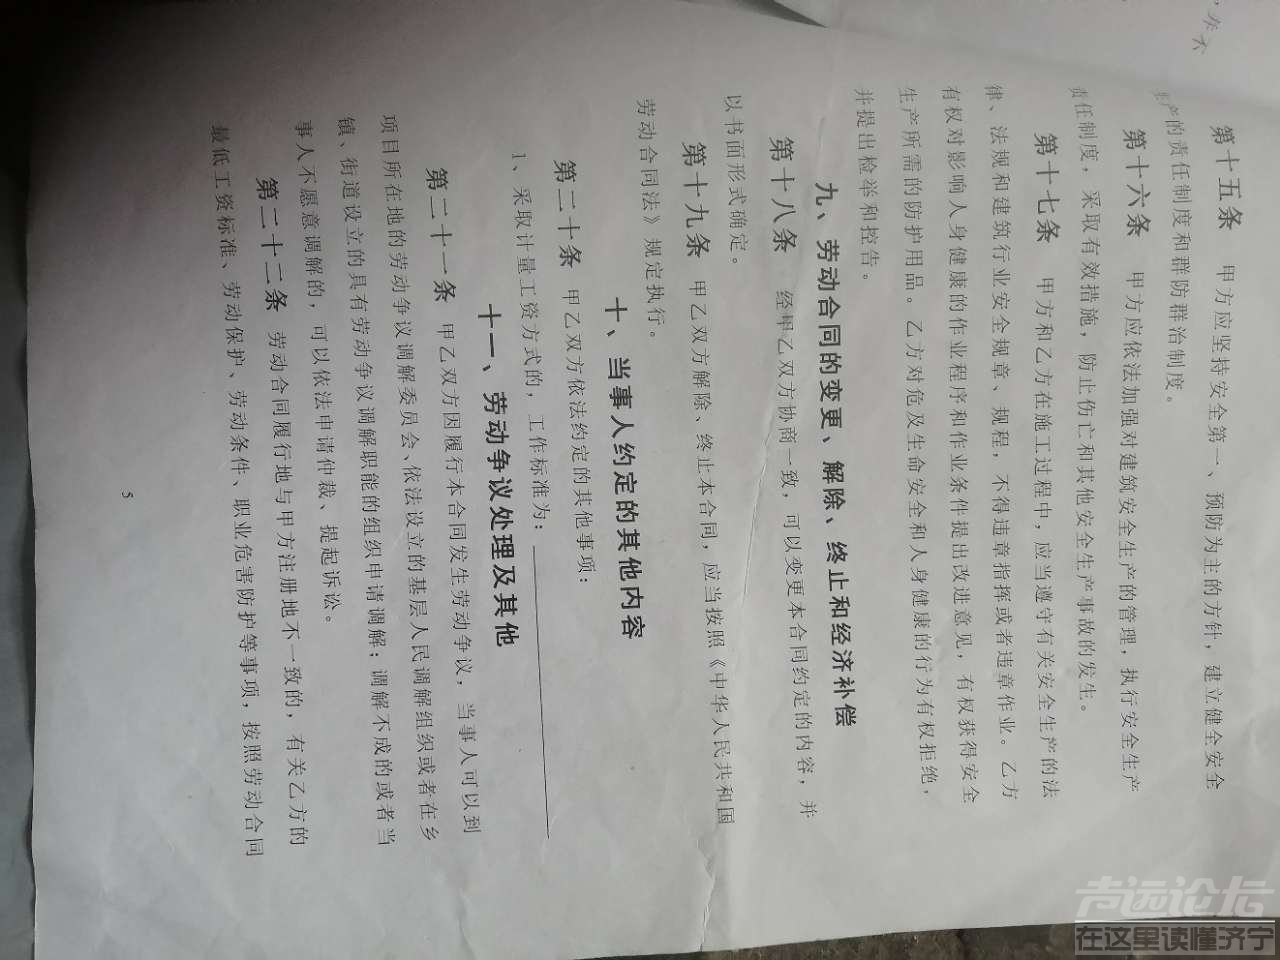 第十五条 甲方应坚持安全第一、预防为主的方针，建立健全安全
生产的责任制度和群防群治制度。
第十六条 甲方应依法加强对建筑安全生产的管理，执行安全生产
责任制度，采取有效措施，防止伤亡和其他安全生产事故的发生。
第十七条 甲方和乙方在施工过程中，应当遵守有关安全生产的法
律、法规和建筑行业安全规章、规程，不得违章指挥或者违章作业。乙方
有权对影响人身健康的作业程序和作业条件提出改进意见，有权获得安全
生产所需的防护用品。乙方对危及生命安全和人身健康的行为有权拒绝，
并提出检举和控告。
九、劳动合同的变更、解除、终止和经济补偿
第十八条 经甲乙双方协商一致，可以变更本合同约定的内容，并
以书面形式确定。
第十九条 甲乙双方解除、终止本合同，应当按照《中华人民共和国
劳动合同法》规定执行。
十、当事人约定的其他内容
第二十条 甲乙双方依法约定的其他事项：
1、采取计量工资方式的，工作标准为：
十一、劳动争议处理及其他
第二十一条 甲乙双方因履行本合同发生劳动争议，当事人可以到
项目所在地的劳动争议调解委员会、依法设立的基层人民调解组织或者在乡
镇、街道设立的具有劳动争议调解职能的组织申请调解；调解不成的或者当
事人不愿意调解的，可以依法申请仲裁、提起诉讼。
第二十二条 劳动合同履行地与甲方注册地不一致的，有关乙方的
最低工资标准、劳动保护、劳动条件、职业危害防护等事项，按照劳动合同
5
声远论坛
在这里读懂济宁